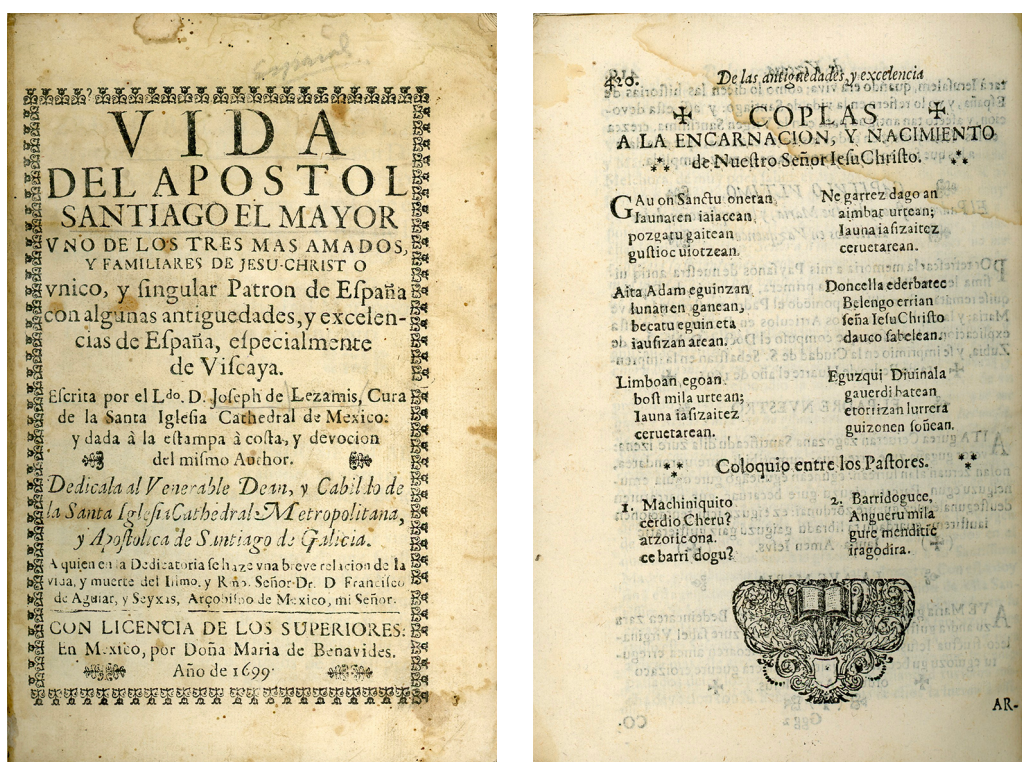 VIDA
DEL APOSTOL
SANTIAGO EL MAYOR
VNO DE LOS TRES MAS AMADOS,
Y FAMILIARES DE JESU-CHRISTO
vnico, y ſingular Patron de Eſpaña
con algunas antiguedades, y excelen-
cias de Eſpaña, eſpecialmente
de Viſcaya.
Eſcrita por el Ldo. D. Joſeph de Lezamis, Cura
de la Santa Igleſia Cathedral de Mexico:
y dada à la eſtampa à coſta, y devocion
del miſmo Author.
Dedicala al Venerable Dean, y Cabildo de
la Santa Igleſia Cathedral Metropolitana,
y Apoſtolica de Santiago de Galicia.
A quien en la Dedicatoria ſe haze vna breve relacion de la
vida, y muerte del Illmo. y Rño. Señor Dr. D Franciſco
de Aguiar, y Seyxas, Arçobiſpo de Mexico, mi Señor.
CON LICENCIA DE LOS SUPERIORES:
En Mexico, por Doña Maria de Benavides.
Año de 1699.
420. De las antiguedades, y excelencia
COPLAS
A LA ENCARNACION, Y NACIMIENTO
de Nueſtro Señor IeſuChriſto.
GAu on Sanctu onetan
Iaunaren iaiacean,
pozgatu gaitean
guſtioc viotzean.
Aita Adam eguinzan
lunaren ganean,
becatu eguin eta
iauſizan arean.
Limboan egoan
boſt mila urtean;
Iauna iaſizaitez
ceruetarean.
Ne garrez dago an
aimbat urtean;
Iauna iaſizaitez
ceruetarean.
Doncella ederbatec
Belengo errian
ſeña IeſuChriſto
dauco ſabelean.
Eguzqui Diuinala
gauerdi batean
etorrizan lurrera
guizonen ſoñean.
Coloquio entre los Paſtores.
1. Machiniquito
cerdio Cheru?
atzoric ona.
ce barri dogu?
2. Barridoguce,
Angueru mila
gure menditic
iragodira.
AR-